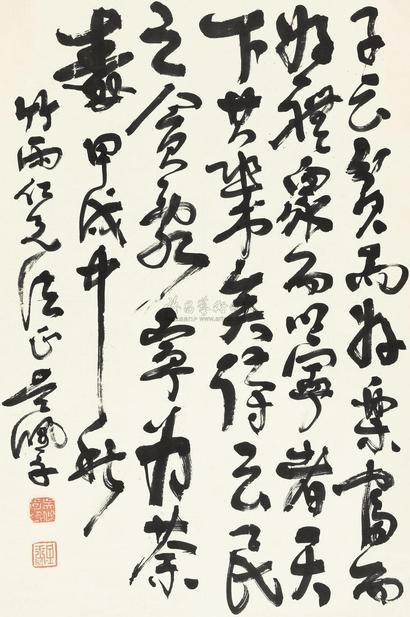 子云貧而好樂富而
好禮衆而以寧者天
下其幾矣詩云民
之貪亂寧為荼
毒甲戌中秋
竹雨仁兄法正吳佩孚